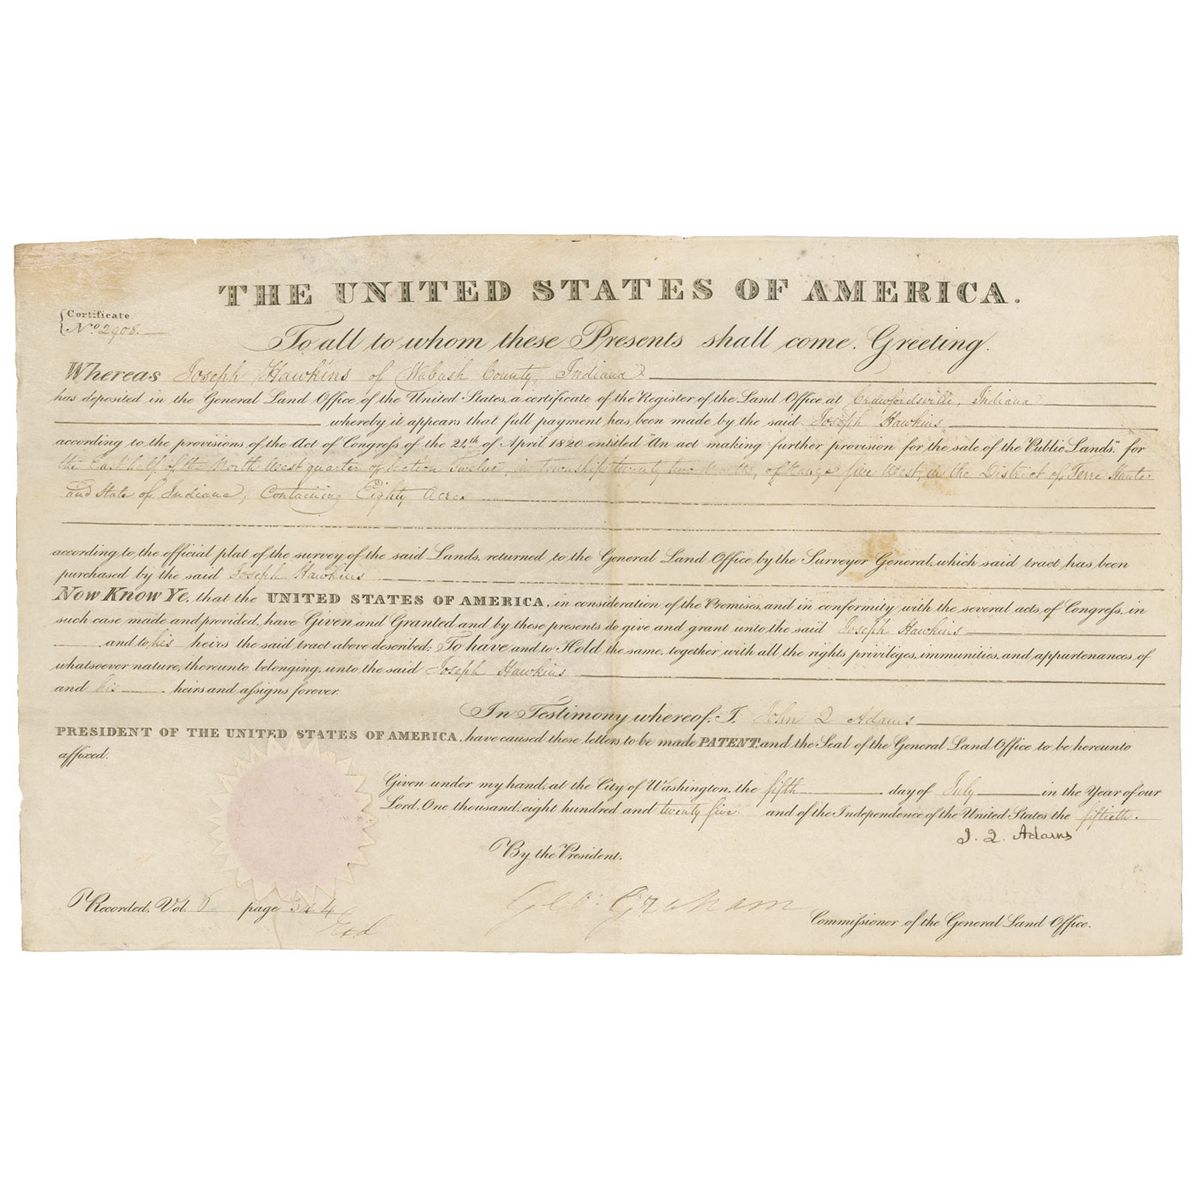 THE UNITED STATES OF AMERICA.
Certificate
No. 2908.
To all to whom these Presents shall come, Greeting.
Whereas Joseph Hawkins of Wabash County, Indiana
has deposited in the General Land Office of the United States, a certificate of the Register of the Land Office at Crawfordsville, Indiana
whereby it appears that full payment has been made by the said Joseph Hawkins,
according to the provisions of the Act of Congress of the 24th of April 1820, entitled "An act making further provision for the sale of the Public Lands," for
the East half of the North West quarter of section Twelve, in township twenty two North, of Range five West, in the District of Terre Haute
and State of Indiana, Containing Eighty Acres
according to the official plat of the survey of the said Lands, returned to the General Land Office by the Surveyor General, which said tract has been
purchased by the said Joseph Hawkins
Now Know Ye, that the UNITED STATES OF AMERICA, in consideration of the Premises, and in conformity with the several acts of Congress, in
such case made and provided, have Given and Granted and by these presents do give and grant unto the said Joseph Hawkins
and to his heirs the said tract above described; To have and to Hold the same, together with all the rights, privileges, immunities, and appurtenances of
whatsoever nature, thereunto belonging, unto the said Joseph Hawkins
and his heirs and assigns forever.
In Testimony whereof, I, John Q Adams
PRESIDENT OF THE UNITED STATES OF AMERICA, have caused these letters to be made PATENT, and the Seal of the General Land Office to be hereunto
affixed.
Given under my hand, at the City of Washington, the fifth day of July in the Year of our
Lord, One thousand, eight hundred and twenty five and of the Independence of the United States the fiftieth.
J. Q. Adams
By the President.
Geo: Graham
Commissioner of the General Land Office.
Recorded, Vol. page